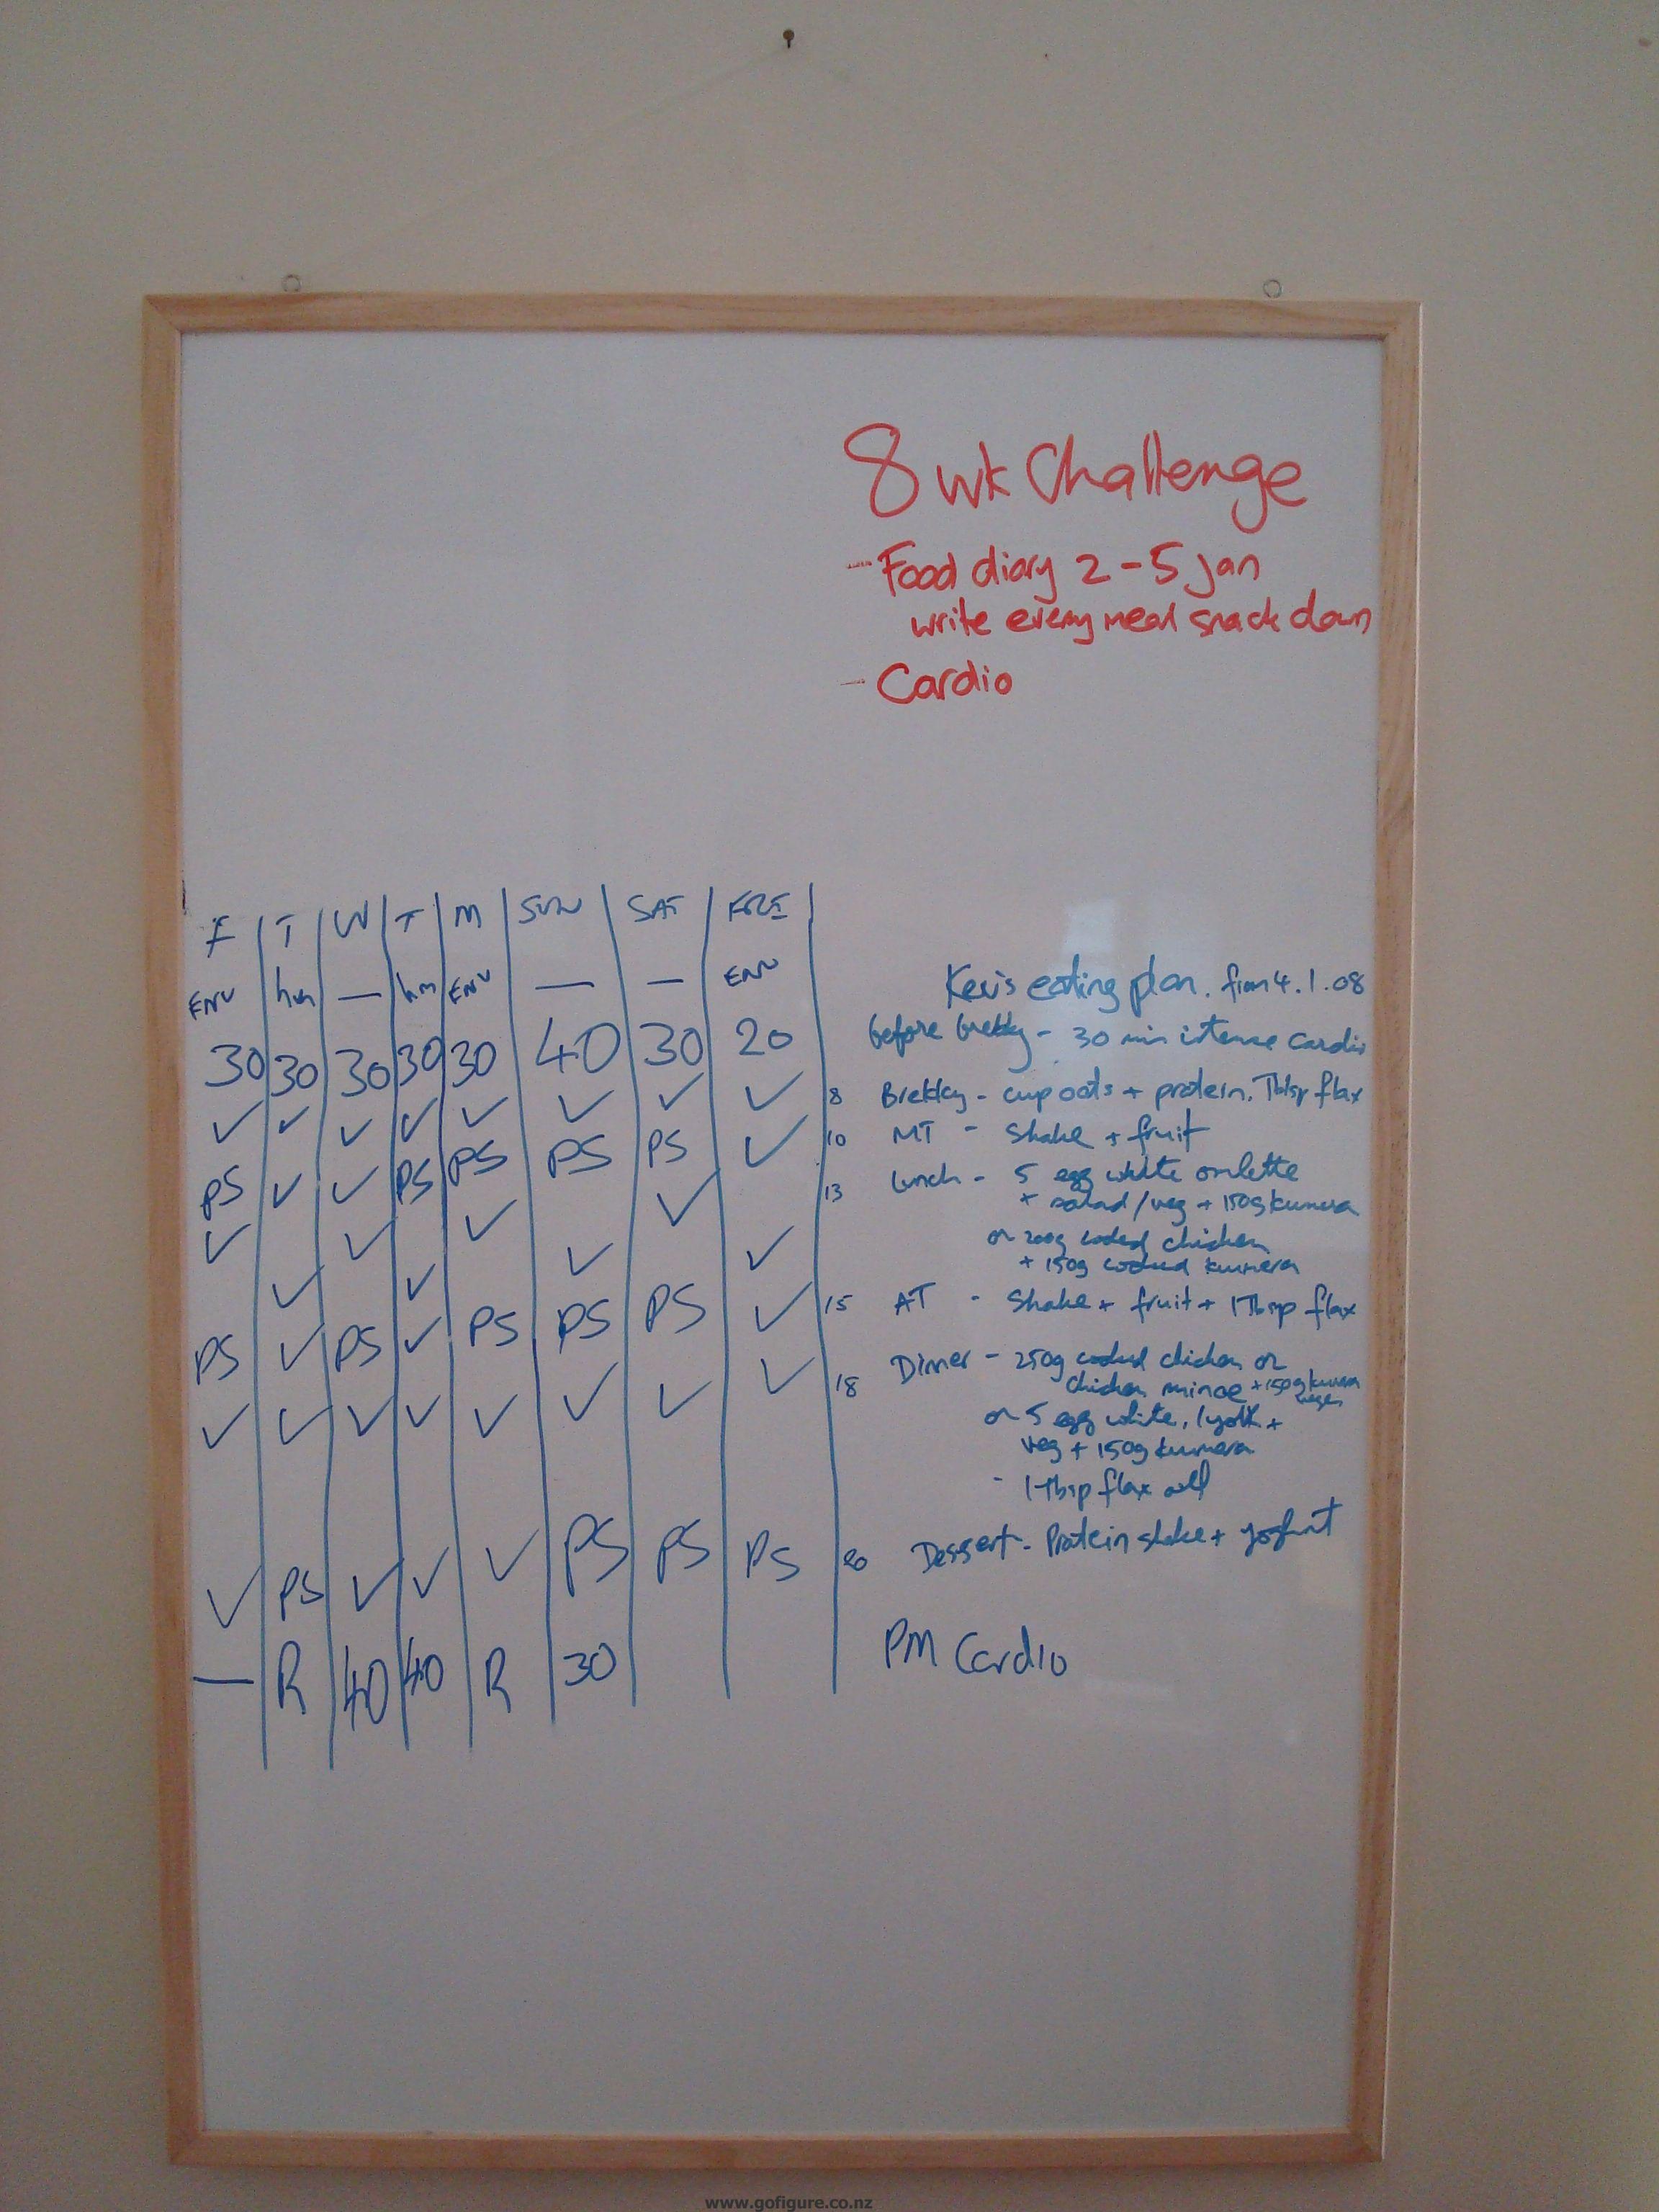 8 wk Challenge
- Food diary 2 - 5 Jan
write every meal snack down
- Cardio
F T W T M SUN SAT FRI
ENV hm — hm ENV — — ENV
Kevi's eating plan. from 4.1.08
30 30 30 30 30 40 30 20 before brekky - 30 min intense cardio
✓ ✓ ✓ ✓ ✓ ✓ ✓ ✓ 8 Brekky - cup oats + protein. 1 Tblsp flax
PS ✓ ✓ PS PS PS PS ✓ 10 MT - Shake + fruit
✓ ✓ ✓ ✓ 13 Lunch - 5 egg white omlette
+ salad / veg + 150g kumera
✓ ✓ ✓ ✓ or 200g cooked chicken
+ 150g cooked kumera
PS ✓ PS ✓ PS PS PS ✓ 15 AT - Shake + fruit + 1 Tbsp flax
✓ ✓ ✓ ✓ ✓ ✓ ✓ ✓ 18 Dinner - 250g cooked chicken or
chicken mince + 150g kumera
veges
or 5 egg white, 1 yolk +
veg + 150g kumera
- 1 Tbsp flax oil
✓ PS ✓ ✓ ✓ PS PS PS 20 Dessert - Protein shake + yoghurt
— R 40 40 R 30 PM Cardio
www.gofigure.co.nz